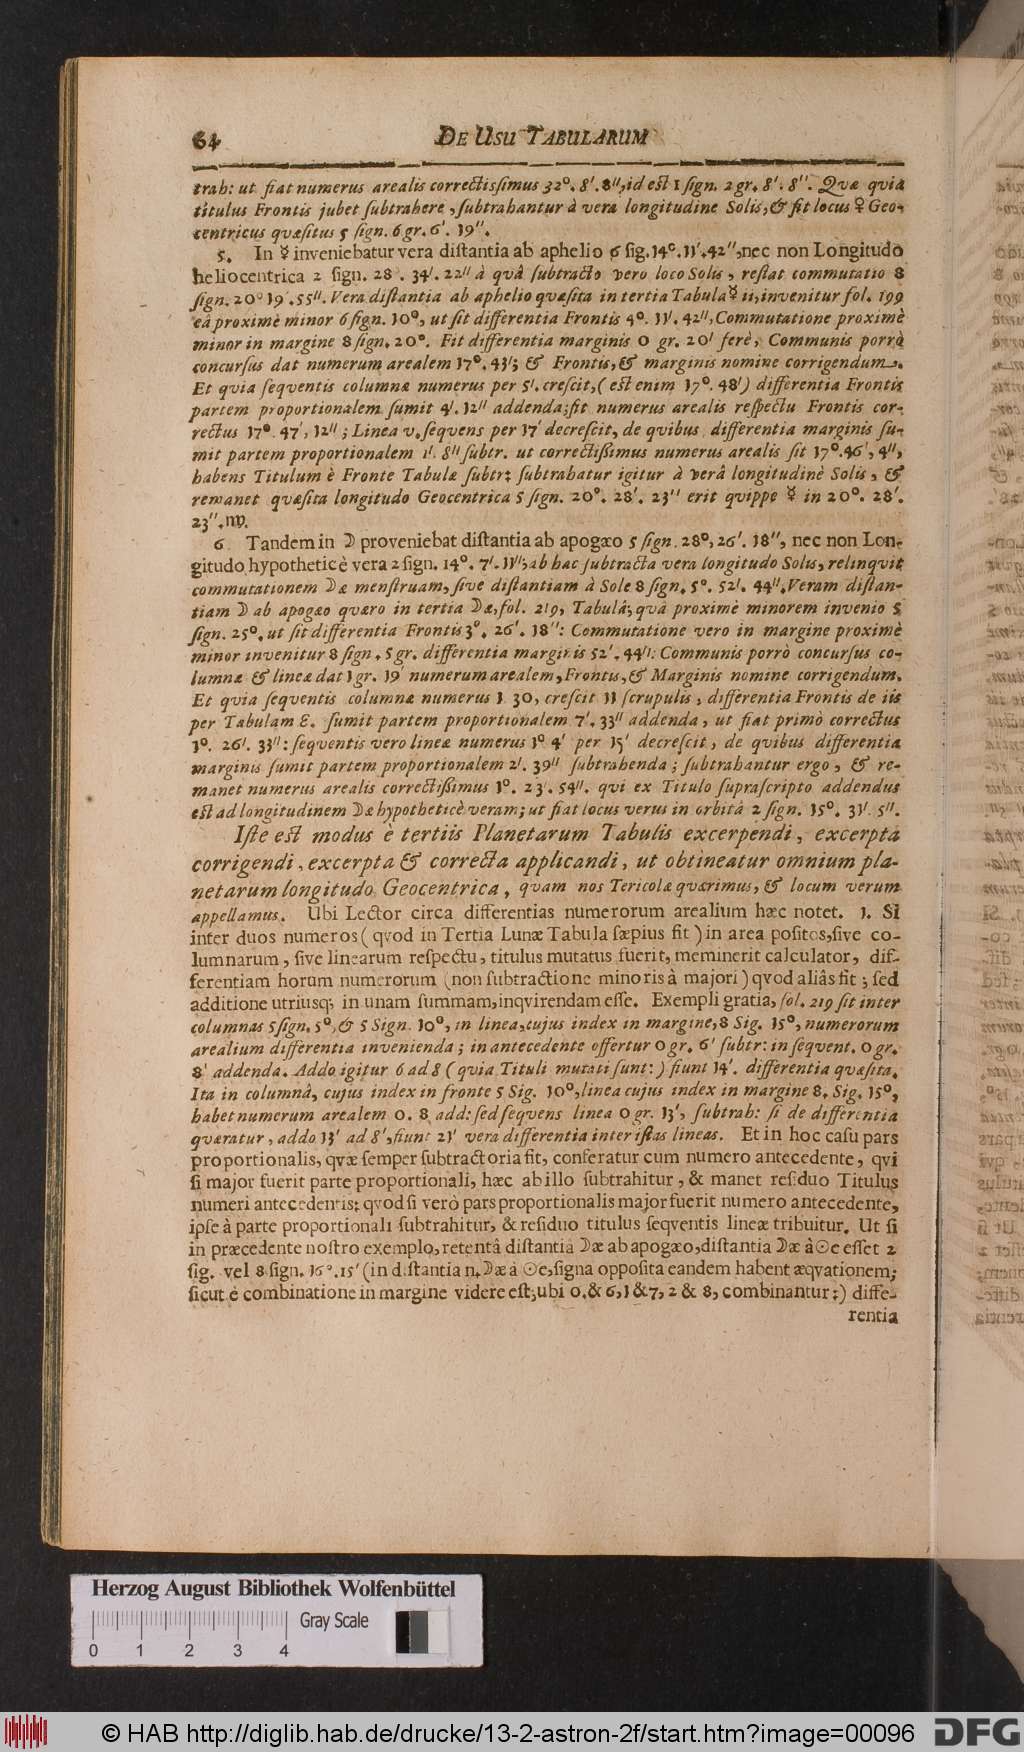 64 DE USU TABULARUM
trah: ut fiat numerus arealis correctissimus 32°. 8'. 8'', id est 1 sign. 2 gr. 8'. 8''. Qvæ qvia
titulus Frontis jubet subtrahere, subtrahantur à vera longitudine Solis, & fit locus ♀ Geo-
centricus qvæsitus 5 sign. 6 gr. 6'. 19''.
5. In ☿ inveniebatur vera distantia ab aphelio 6 sig. 14°. 11'. 42'', nec non Longitudo
heliocentrica 2 sign. 28°. 34'. 22'' à qvâ subtracto vero loco Solis, restat commutatio 8
sign. 20° 19'. 55''. Vera distantia ab aphelio qvæsita in tertia Tabula ☿ ii, invenitur fol. 199
eâ proximè minor 6 sign. 10°, ut sit differentia Frontis 4°. 11'. 42'', Commutatione proximè
minor in margine 8 sign. 20°. Fit differentia marginis 0 gr. 20' ferè, Communis porrò
concursus dat numerum arealem 17°. 43'; & Frontis, & marginis nomine corrigendum.
Et qvia seqventis columnæ numerus per 5'. crescit, (est enim 17°. 48') differentia Frontis
partem proportionalem sumit 4'. 12'' addenda; fit numerus arealis respectu Frontis cor-
rectus 17°. 47', 12''; Linea v. seqvens per 17' decrescit, de qvibus differentia marginis su-
mit partem proportionalem 1'. 8'' subtr. ut correctissimus numerus arealis sit 17°. 46', 4'',
habens Titulum è Fronte Tabulæ subtr: subtrahatur igitur à verâ longitudinè Solis, &
remanet qvæsita longitudo Geocentrica 5 sign. 20°. 28'. 23'' erit qvippe ☿ in 20°. 28'.
23''. ♍.
6. Tandem in ☽ proveniebat distantia ab apogæo 5 sign. 28°, 26'. 18'', nec non Lon-
gitudo hypotheticè vera 2 sign. 14°. 7'. 11''; ab hac subtracta vera longitudo Solis, relinqvit
commutationem ☽æ menstruam, sive distantiam à Sole 8 sign. 5°. 52'. 44''. Veram distan-
tiam ☽ ab apogæo qværo in tertia ☽æ, fol. 219, Tabulâ; qvâ proximè minorem invenio 5
sign. 25°. ut sit differentia Frontis 3°. 26'. 18'': Commutatione vero in margine proximè
minor invenitur 8 sign. 5 gr. differentia marginis 52'. 44'': Communis porrò concursus co-
lumnæ & lineæ dat 1 gr. 19' numerum arealem, Frontis, & Marginis nomine corrigendum.
Et qvia seqventis columnæ numerus 1. 30, crescit 11 scrupulis, differentia Frontis de iis
per Tabulam E. sumit partem proportionalem 7'. 33'' addenda, ut fiat primò correctus
1°. 26'. 33'': seqventis vero lineæ numerus 1° 4' per 15' decrescit, de qvibus differentia
marginis sumit partem proportionalem 2'. 39'' subtrahenda; subtrahantur ergo, & re-
manet numerus arealis correctissimus 1°. 23'. 54''. qvi ex Titulo suprascripto addendus
est ad longitudinem ☽æ hypotheticè veram; ut fiat locus verus in orbitâ 2 sign. 15°. 31'. 5''.
Iste est modus è tertiis Planetarum Tabulis excerpendi, excerpta
corrigendi, excerpta & correcta applicandi, ut obtineatur omnium pla-
netarum longitudo Geocentrica, qvam nos Tericolæ qværimus, & locum verum
appellamus. Ubi Lector circa differentias numerorum arealium hæc notet. 1. Si
inter duos numeros (qvod in Tertia Lunæ Tabula sæpius fit) in area positos, sive co-
lumnarum, sive linearum respectu, titulus mutatus fuerit, meminerit calculator, dif-
ferentiam horum numerorum (non subtractione minoris à majori) qvod aliâs fit; sed
additione utriusq; in unam summam, inqvirendam esse. Exempli gratia, fol. 219 sit inter
columnas 5 sign. 5°, & 5 Sign. 10°, in linea, cujus index in margine, 8 Sig. 15°, numerorum
arealium differentia invenienda; in antecedente offertur 0 gr. 6' subtr: in seqvent. 0 gr.
8' addenda. Addo igitur 6 ad 8 (qvia Tituli mutati sunt:) fiunt 14'. differentia qvæsita.
Ita in columnâ, cujus index in fronte 5 Sig. 10°, linea cujus index in margine 8. Sig. 15°,
habet numerum arealem 0. 8 add: sed seqvens linea 0 gr. 13', subtrah: si de differentia
qværatur, addo 13' ad 8', fiunt 21' vera differentia inter istas lineas. Et in hoc casu pars
proportionalis, qvæ semper subtractoria fit, conferatur cum numero antecedente, qvi
si major fuerit parte proportionali, hæc ab illo subtrahitur, & manet residuo Titulus
numeri antecedentis: qvod si verò pars proportionalis major fuerit numero antecedente,
ipse à parte proportionali subtrahitur, & residuo titulus seqventis lineæ tribuitur. Ut si
in præcedente nostro exemplo, retentâ distantiâ ☽æ ab apogæo, distantia ☽æ à ☉e esset 2
sig. vel 8 sign. 16°. 15' (in distantia n. ☽æ à ☉e, signa opposita eandem habent æqvationem;
sicut è combinatione in margine videre est; ubi 0. & 6, 1 & 7, 2 & 8, combinantur:) diffe-
rentia
Herzog August Bibliothek Wolfenbüttel
Gray Scale
0 1 2 3 4
© HAB http://diglib.hab.de/drucke/13-2-astron-2f/start.htm?image=00096 DFG